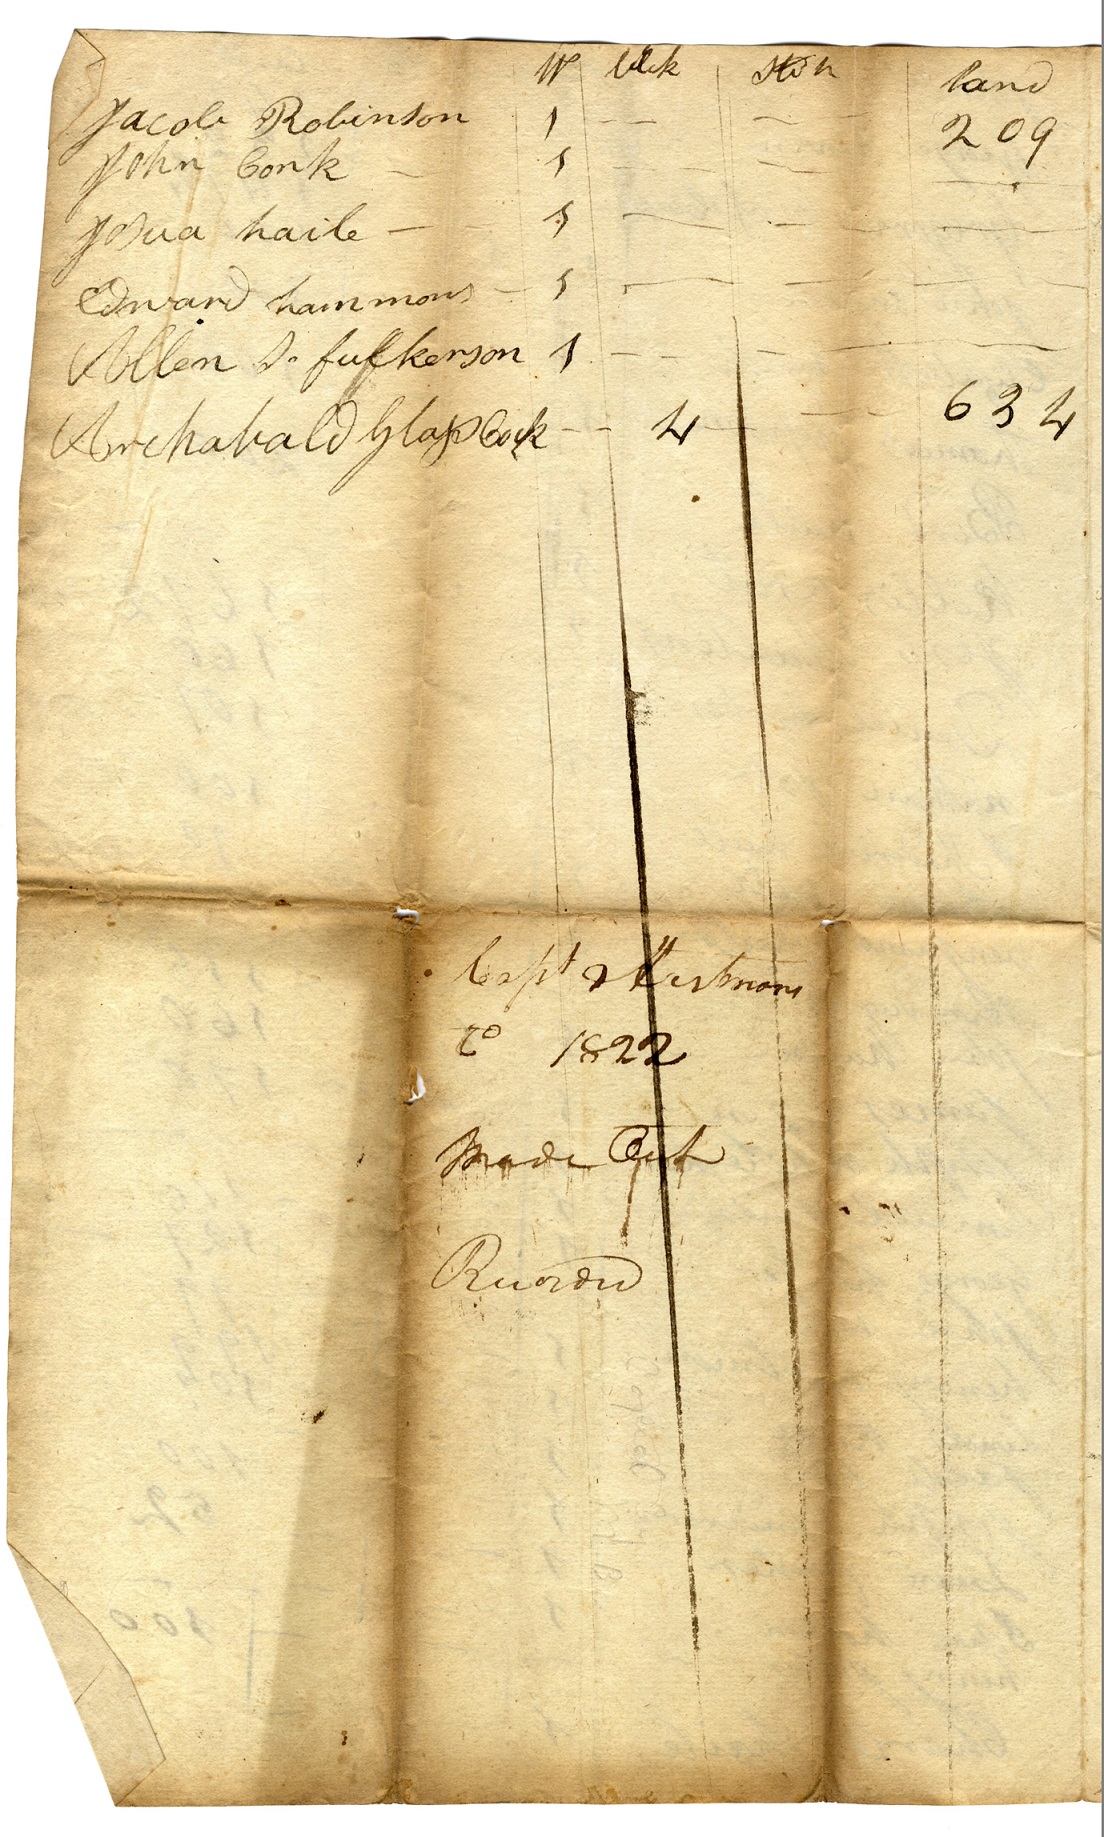 W blk Stoh land
Jacob Robinson 1 — — — 209
John Conk — 1 — — —
Josua haile — 1 — — —
Edward hammons — 1 — — —
Allen S. fulkerson 1 — — — —
Archabald Glasscock — 4 — — 634
Capt
Co 1822
Made Out
Recorded